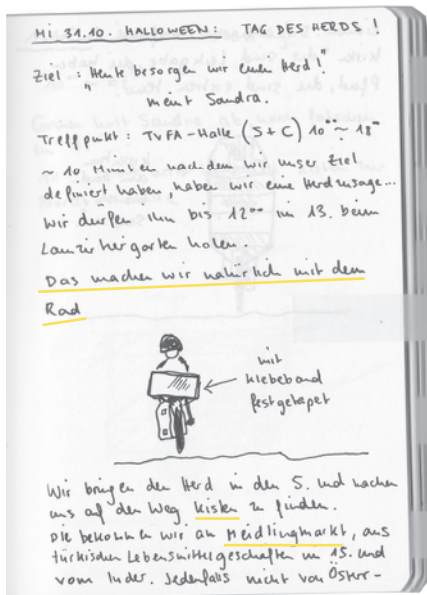 MI 31.10. HALLOWEEN: TAG DES HERDS!
Ziel : "Heute besorgen wir einen Herd!"
meint Sandra.
Treffpunkt: TVFA-Halle (S+C) 10⁰⁰ ~ 18⁰⁰
~ 10 Minuten nachdem wir unser Ziel
definiert haben haben wir eine Herdzusage...
Wir dürfen ihn bis 12⁰⁰ im 13. beim
Lainzer Tiergarten holen.
Das machen wir natürlich mit dem
Rad
mit
Klebeband
festgetapet
Wir bringen den Herd in den 5. und machen
uns auf den Weg Kisten zu finden.
Die bekommen wir am Meidlingmarkt, aus
türkischen Lebensmittelgeschäften im 15. und
vom Inder. Jedenfalls nicht von Öster-